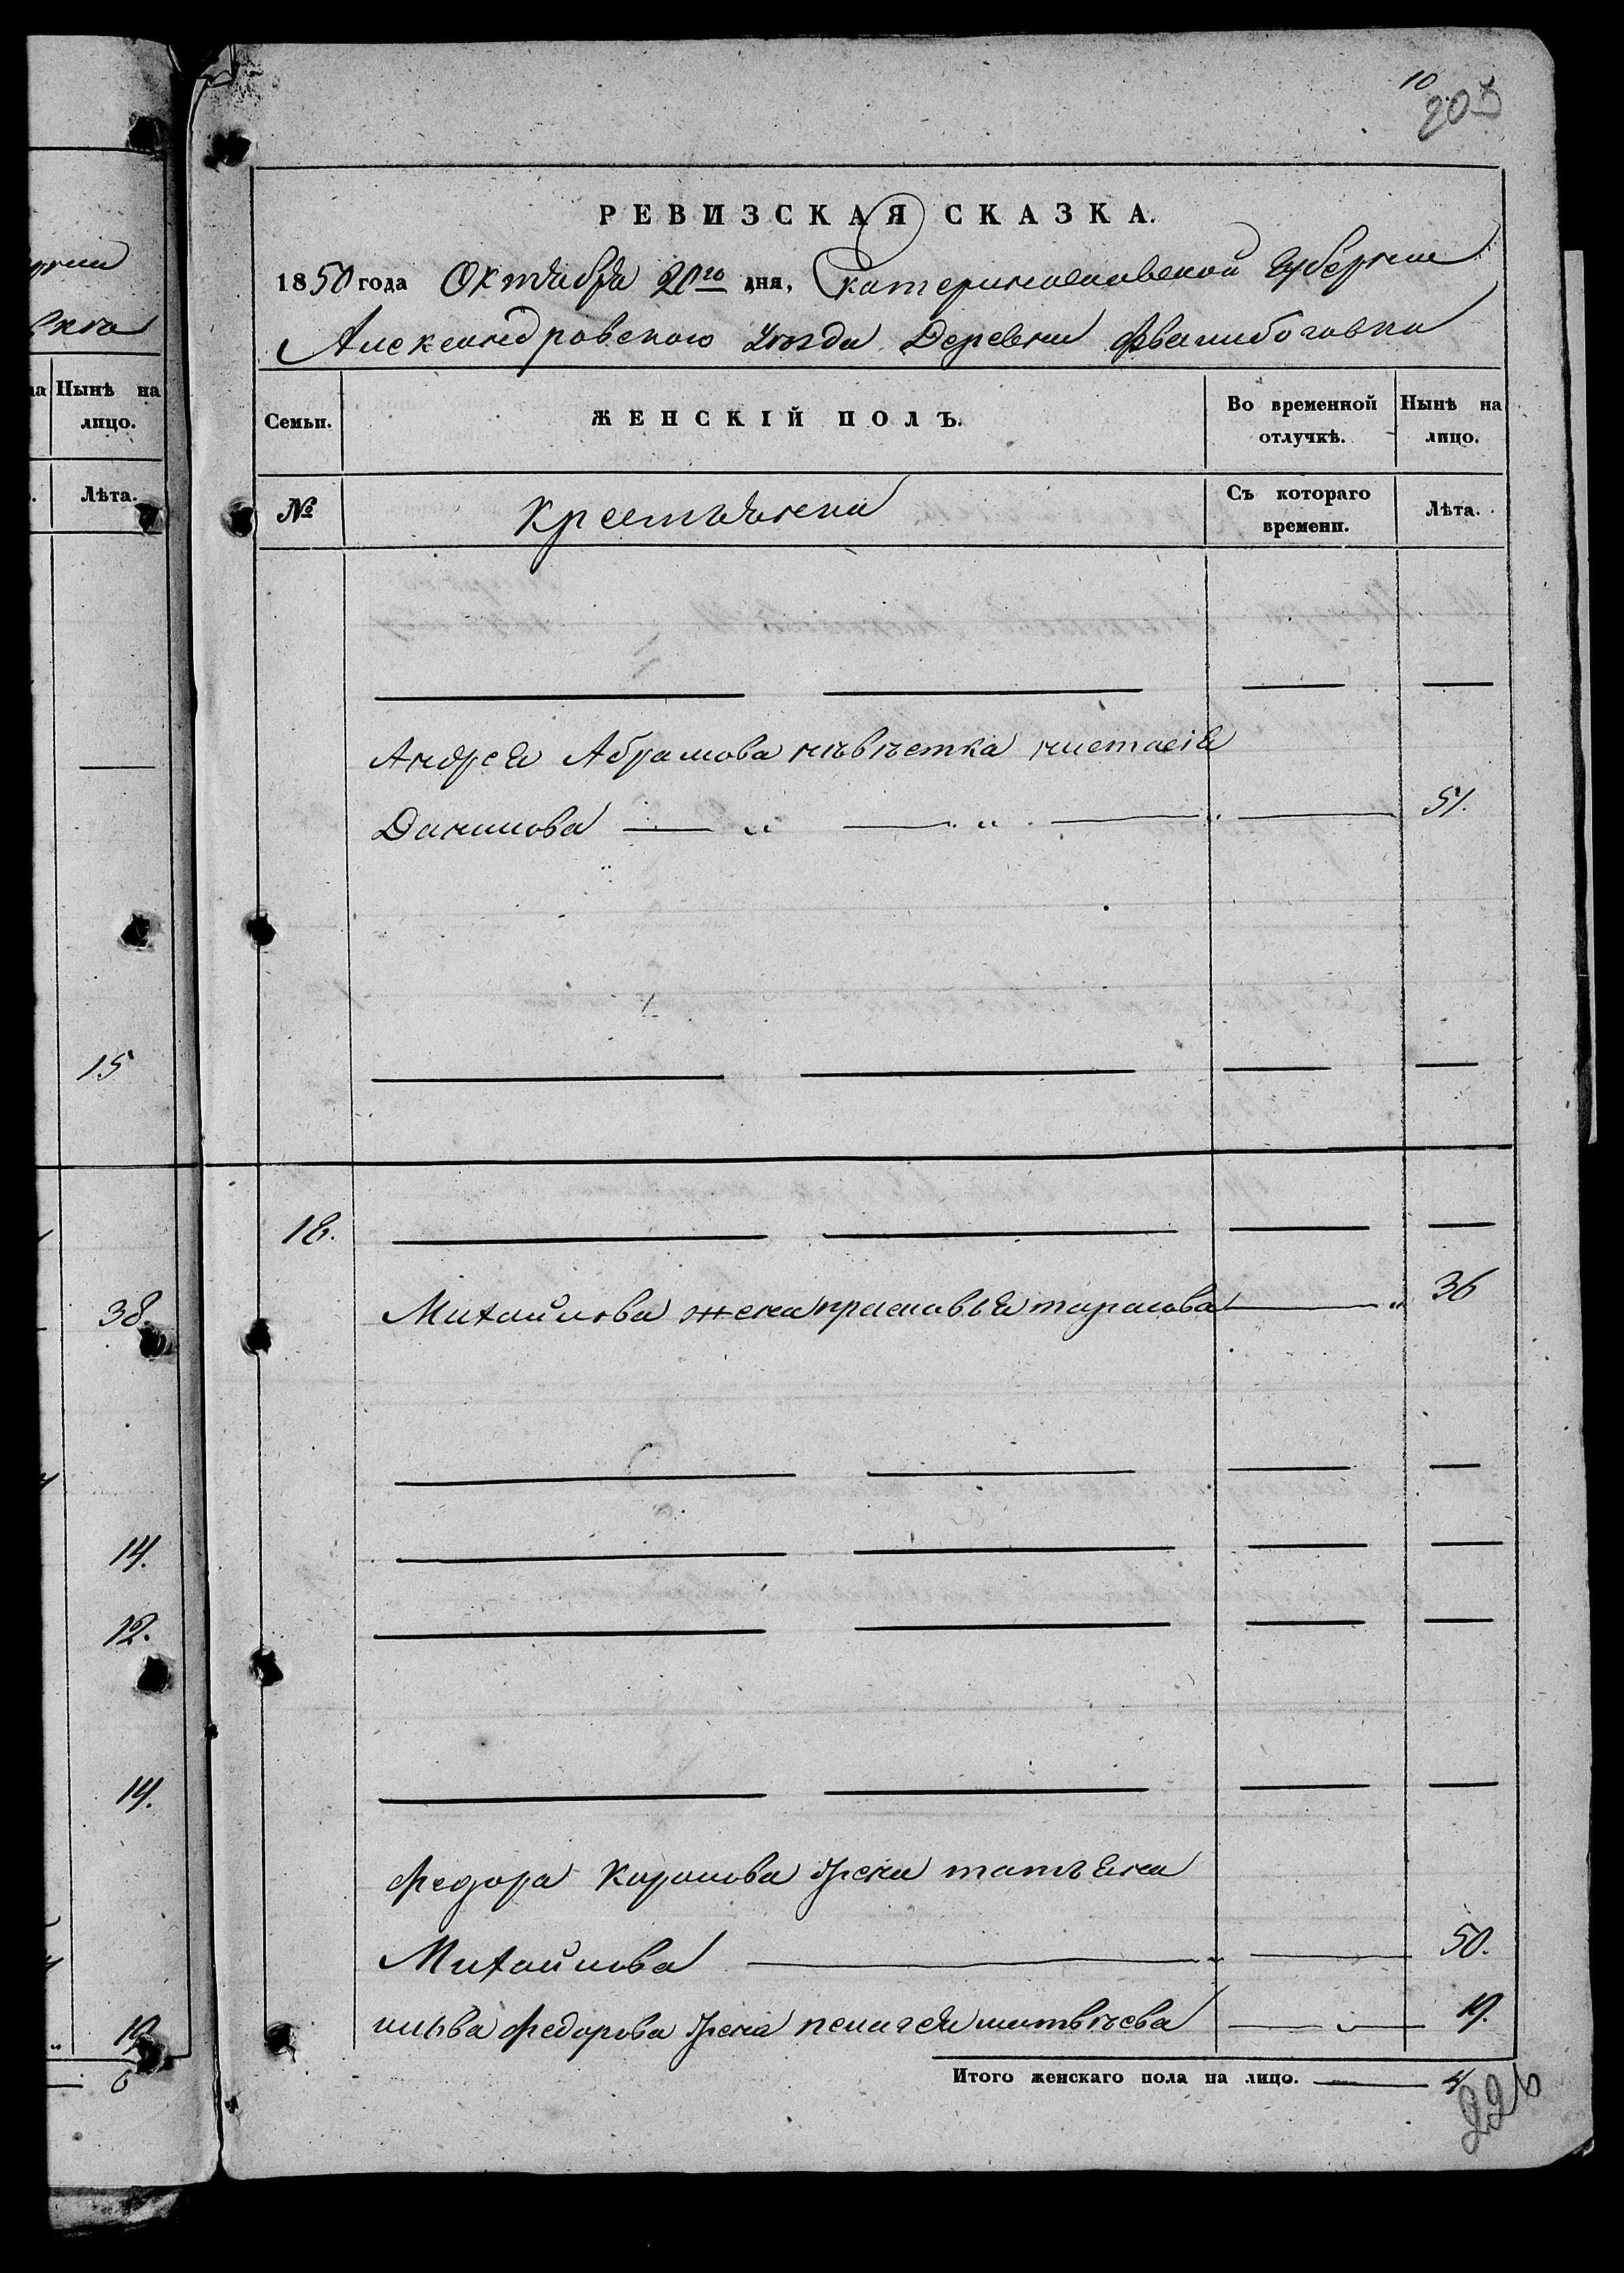 10
203
РЕВИЗСКАЯ СКАЗКА.
1850 года Октября 20го дня, Екатеринославской Губернии
Александровского Уезда Деревни
Семьи.
ЖЕНСКІЙ ПОЛЪ.
Во временной отлучкѣ.
Нынѣ на лицо.
№
Крестьяне
Съ котораго времени.
Лѣта.
Андрея Абрамова невѣстка
Данилова — „ — „ — „ — 51.
18.
Михайлова жена прасковья тарасова — „ 36
Федора Карпова жена татьяна
Михайлова — „ — 50.
ильва Федорова жена пелагея матвѣева — „ — 19.
Итого женскаго пола на лицо. — 4
226
Нынѣ на лицо.
Лѣта.
15
38.
14.
12.
14.
19
6